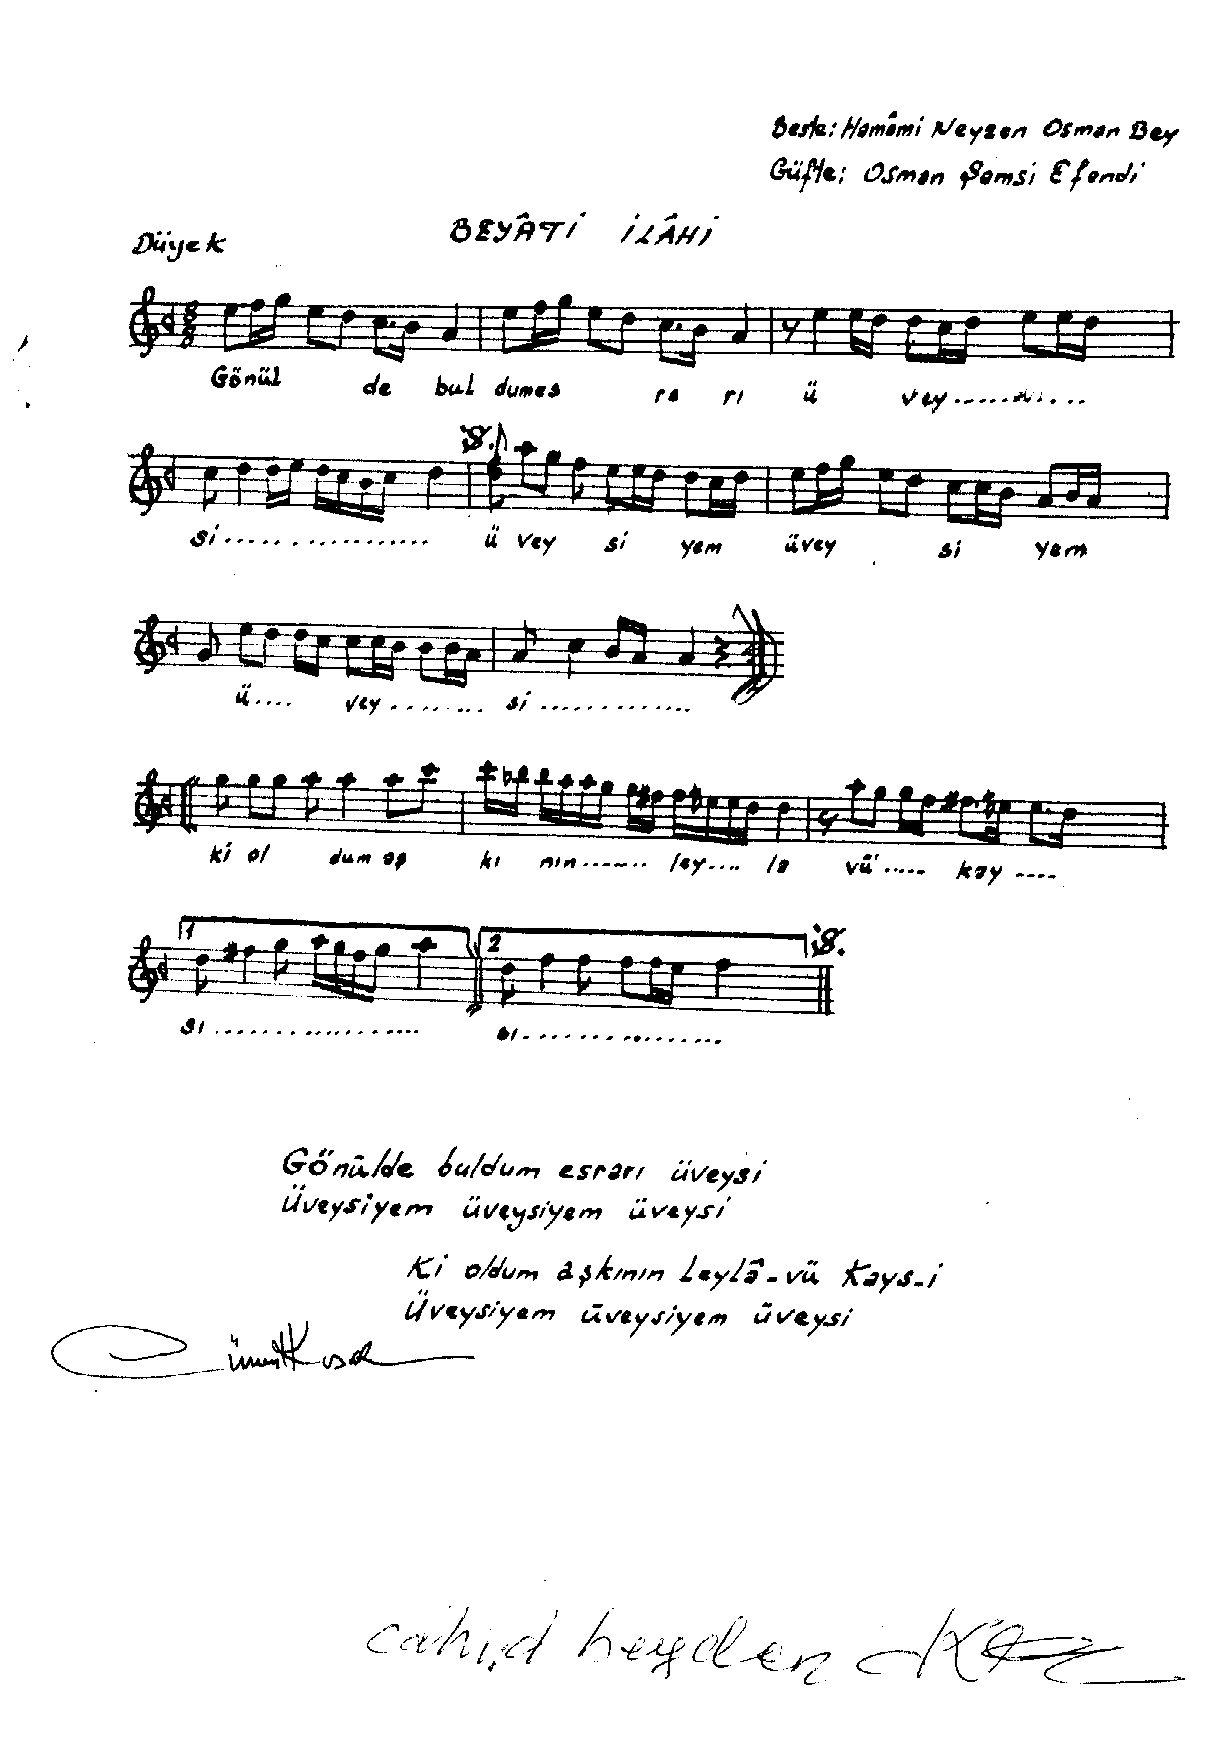 Beste: Hamâmi Neyzen Osman Bey
Güfte: Osman Şemsi Efendi
BEYÂTİ İLÂHİ
Düyek
8
8
Gönül de bul dumes ra rı ü vey...........
si.................. ü vey si yem üvey si yem
ü.... vey........ si.............
ki ol dum aş kı nın....... ley.... la vü..... kay....
1 2
sı.................. sı..................
Gönülde buldum esrarı üveysi
Üveysiyem üveysiyem üveysi
Ki oldum aşkının Leylâ-vü Kays-i
Üveysiyem üveysiyem üveysi
cahid beyden